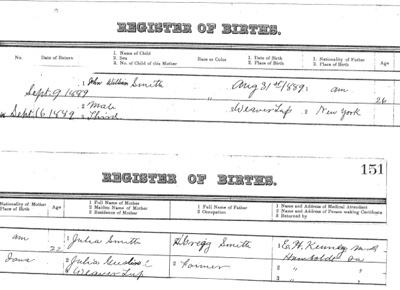 REGISTER OF BIRTHS.
No. Date of Return 1 Name of Child 2 Sex 3 No. of Child of this Mother Race or Color 1 Date of Birth 2 Place of Birth 1 Nationality of Father 2 Place of Birth Age
Sept. 9 1889 1 John William Smith " Aug 31st 1889 1 am 26
Sept 16 1889 2 Male Weaver Twp 2 New York
3 Third
151
REGISTER OF BIRTHS.
Nationality of Mother Place of Birth Age 1 Full Name of Mother 2 Maiden Name of Mother 3 Residence of Mother 1 Full Name of Father 2 Occupation 1 Name and Address of Medical Attendant 2 Name and Address of Person making Certificate 3 Returned by
am 22 1 Julia Smith Gregg Smith 1 E. W. M.D.
Iowa 2 Julia 2 Farmer Humboldt Ia
3 Weaver Twp 2 " "
3 " "